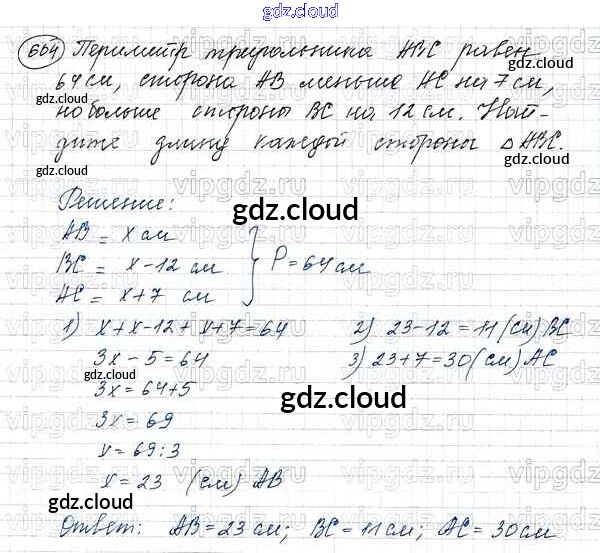 gdz.cloud
664 Периметр треугольника ABC равен
64 см, сторона AB меньше AC на 7 см,
но больше стороны BC на 12 см. Най-
дите длину каждой стороны △ ABC.
Решение:
AB = x см
BC = x - 12 см
AC = x + 7 см
P = 64 см
1) x + x - 12 + x + 7 = 64
3x - 5 = 64
3x = 64 + 5
3x = 69
x = 69 : 3
x = 23 (см) AB
2) 23 - 12 = 11 (см) BC
3) 23 + 7 = 30 (см) AC
Ответ: AB = 23 см; BC = 11 см; AC = 30 см
gdz.cloud
gdz.cloud
gdz.cloud
gdz.cloud
gdz.cloud
gdz.cloud
gdz.cloud
gdz.cloud
gdz.cloud
gdz.cloud
vipgdz.ru